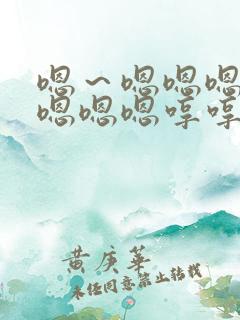 嗯～嗯嗯嗯
嗯嗯嗯哼哼
黄庚华
未经同意禁止转载